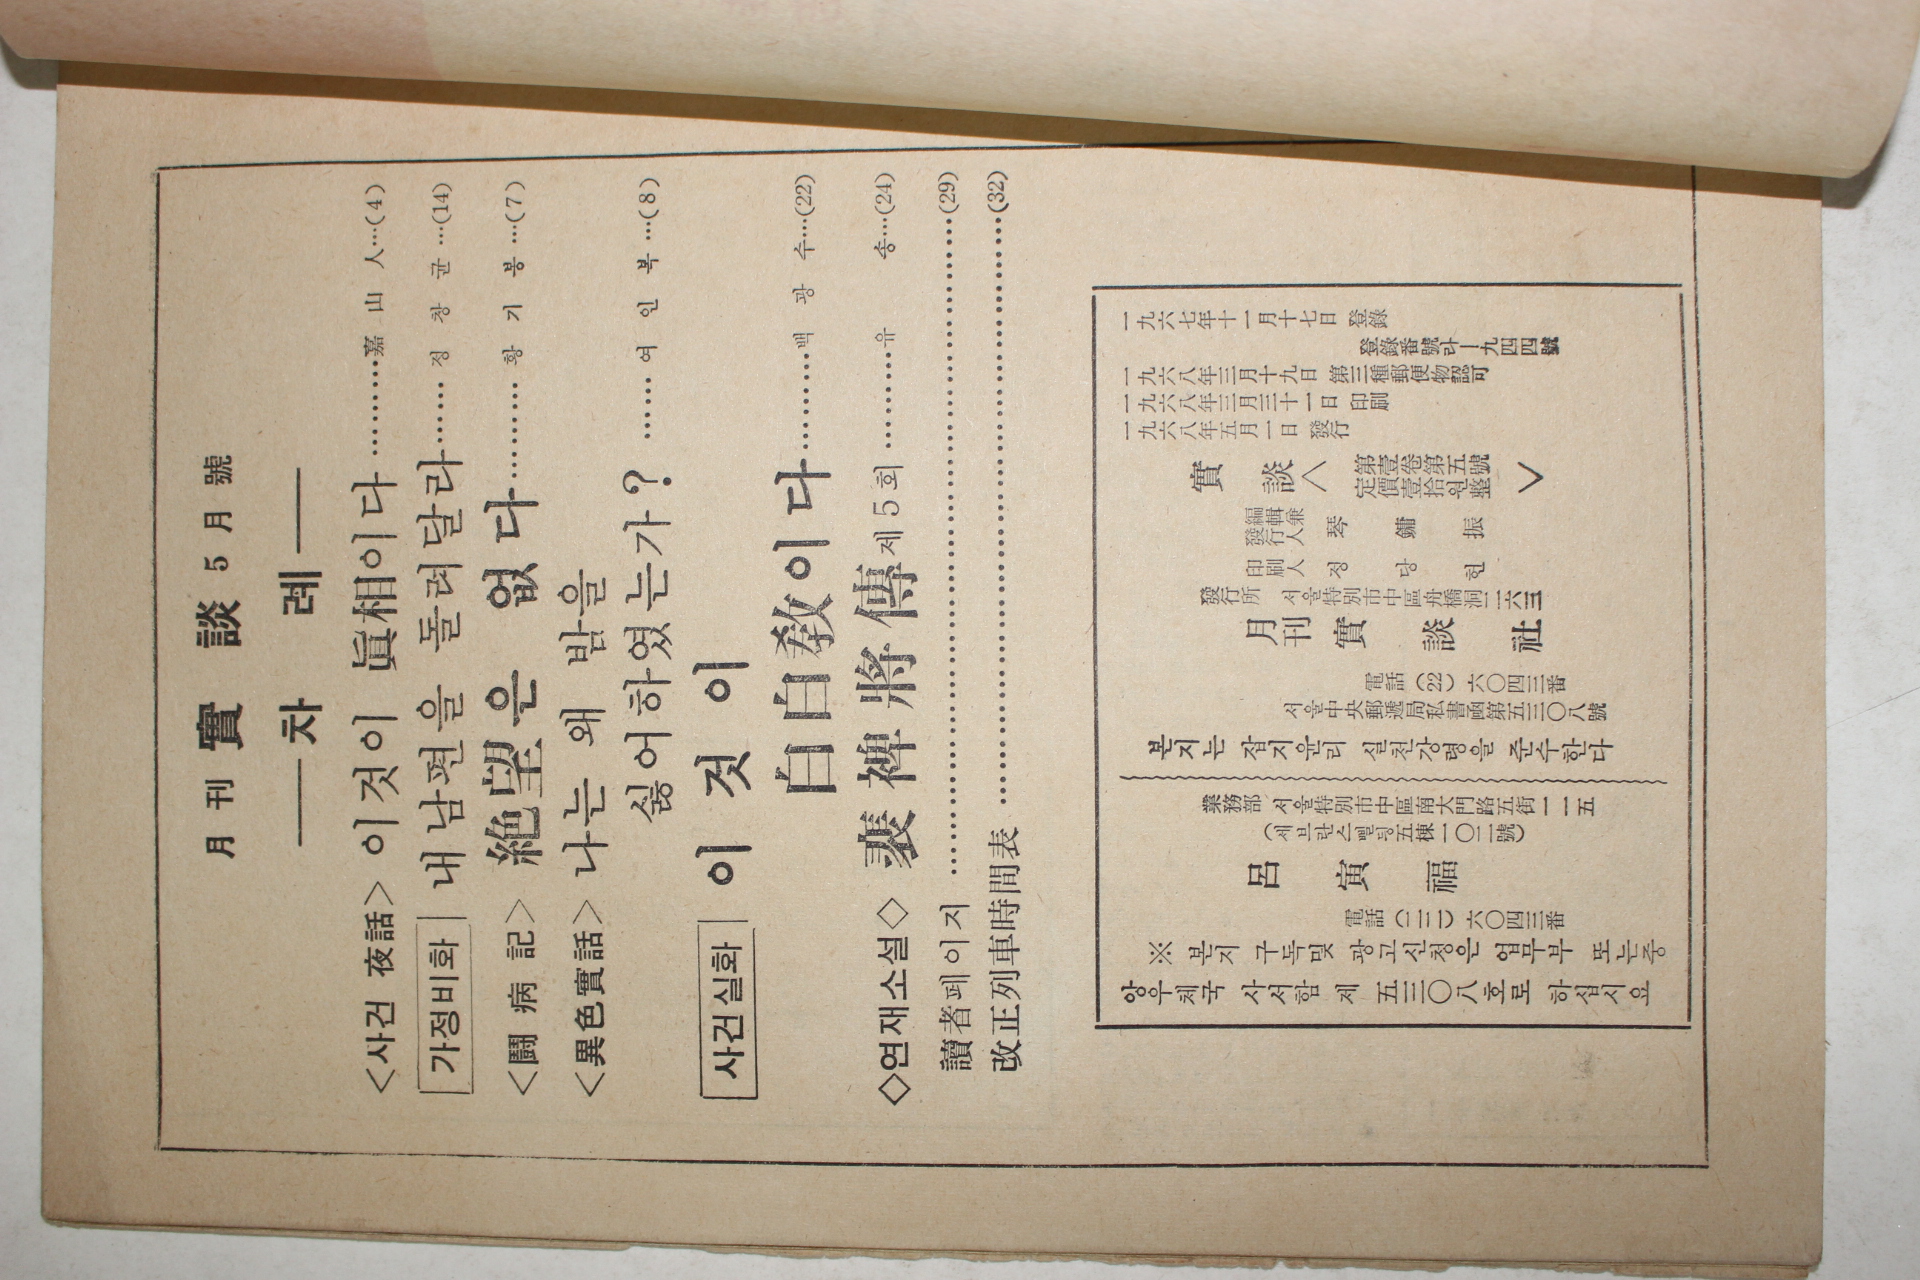 月刊 實談 5月號
차례
<사건 夜話> 이것이 眞相이다………嘉山人…(4)
가정비화 내 남편을 돌려달라…… 정창균…(14)
<鬪病記> 絶望은 없다……… 황기봉…(7)
<異色實話> 나는 왜 밤을
싫어하였는가? …… 여인복…(8)
사건실화 이것이
白白敎이다………백광수…(22)
◇연재소설◇ 裵裨將傳 제5회………유송…(24)
讀者페이지………(29)
改正列車時間表………(32)
一九六七年十一月十七日 登錄
登錄番號라―九四四號
一九六八年三月十九日 第三種郵便物認可
一九六八年三月三十一日 印刷
一九六八年五月一日 發行
實談<第壹卷第五號
定價壹拾원整>
編輯兼
發行人 琴鏞振
印刷人 정당헌
發行所 서울特別市中區舟橋洞一六三
月刊 實談社
電話 (22) 六〇四三番
서울中央郵遞局私書函第五三〇八號
본지는 잡지윤리 실천강령을 준수한다
業務部 서울特別市中區南大門路五街一一五
(세브란스삘딩五棟一〇二號)
呂寅福
電話 (二二) 六〇四三番
※ 본지 구독및 광고신청은 업무부 또는중
앙우체국 사서함 제 五三〇八호로 하십시요